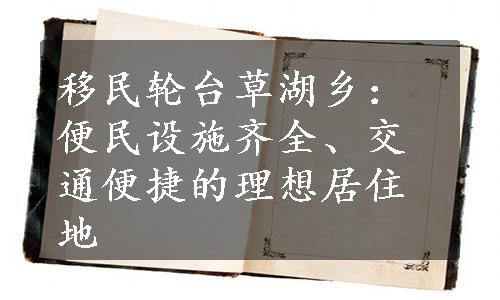 移民轮台草湖乡：
便民设施齐全、交
通便捷的理想居住
地